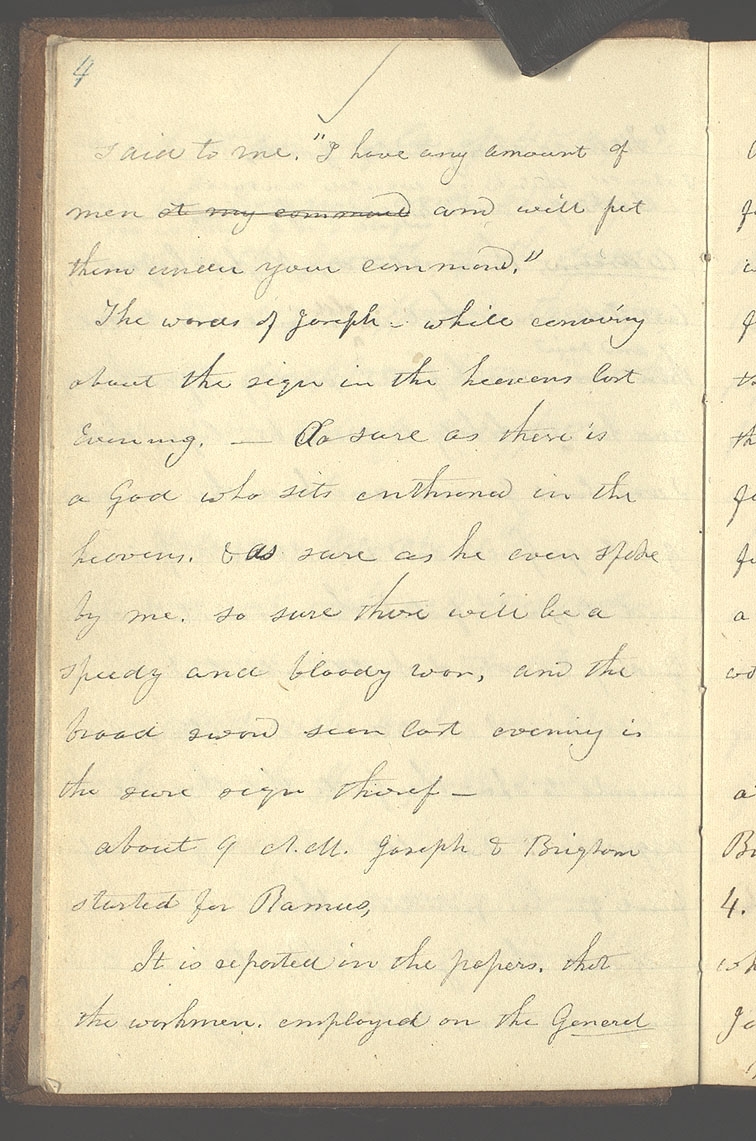 4
said to me. "I have any amount of
men at my command and will put
them under your command."
The words of Joseph - while conversing
about the sign in the heavens last
Evening. — As sure as there is
a God who sits enthroned in the
heavens. & as sure as he ever spoke
by me. so sure there will be a
speedy and bloody war, and the
broad sword seen last evening is
the sure sign therof —
about 9 A.M. Joseph & Brigham
started for Ramus,
It is reported in the papers. that
the workmen. employed on the General
4.